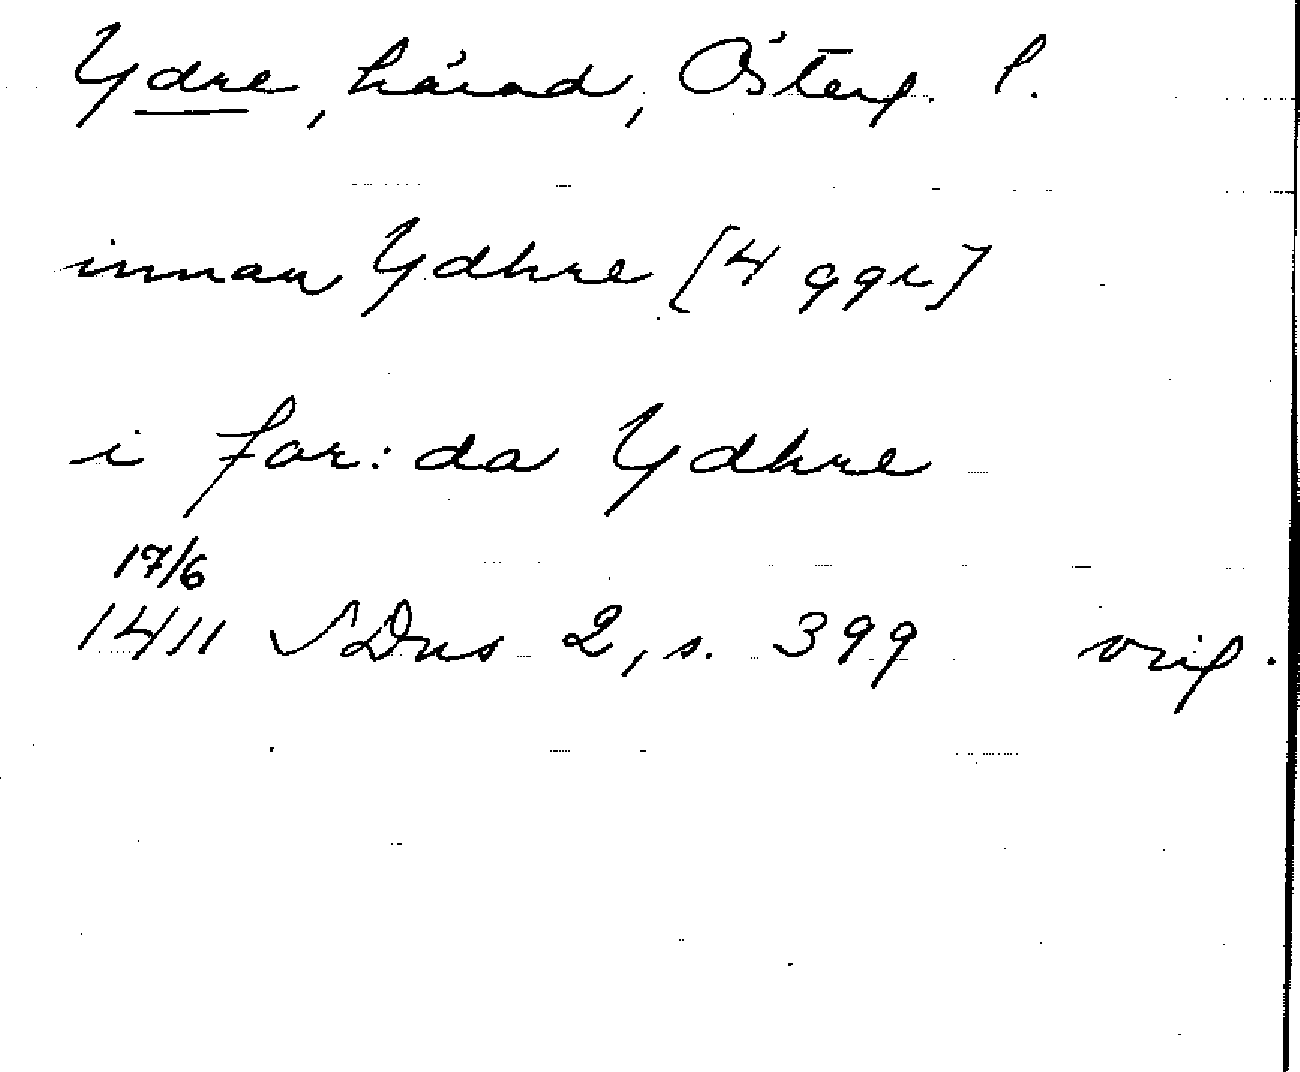 Ydre, härad, Österg. l.
innan Ydhre [4 ggr]
i for:da Ydhre
17/6
1411 SDns 2, s. 399 orig.